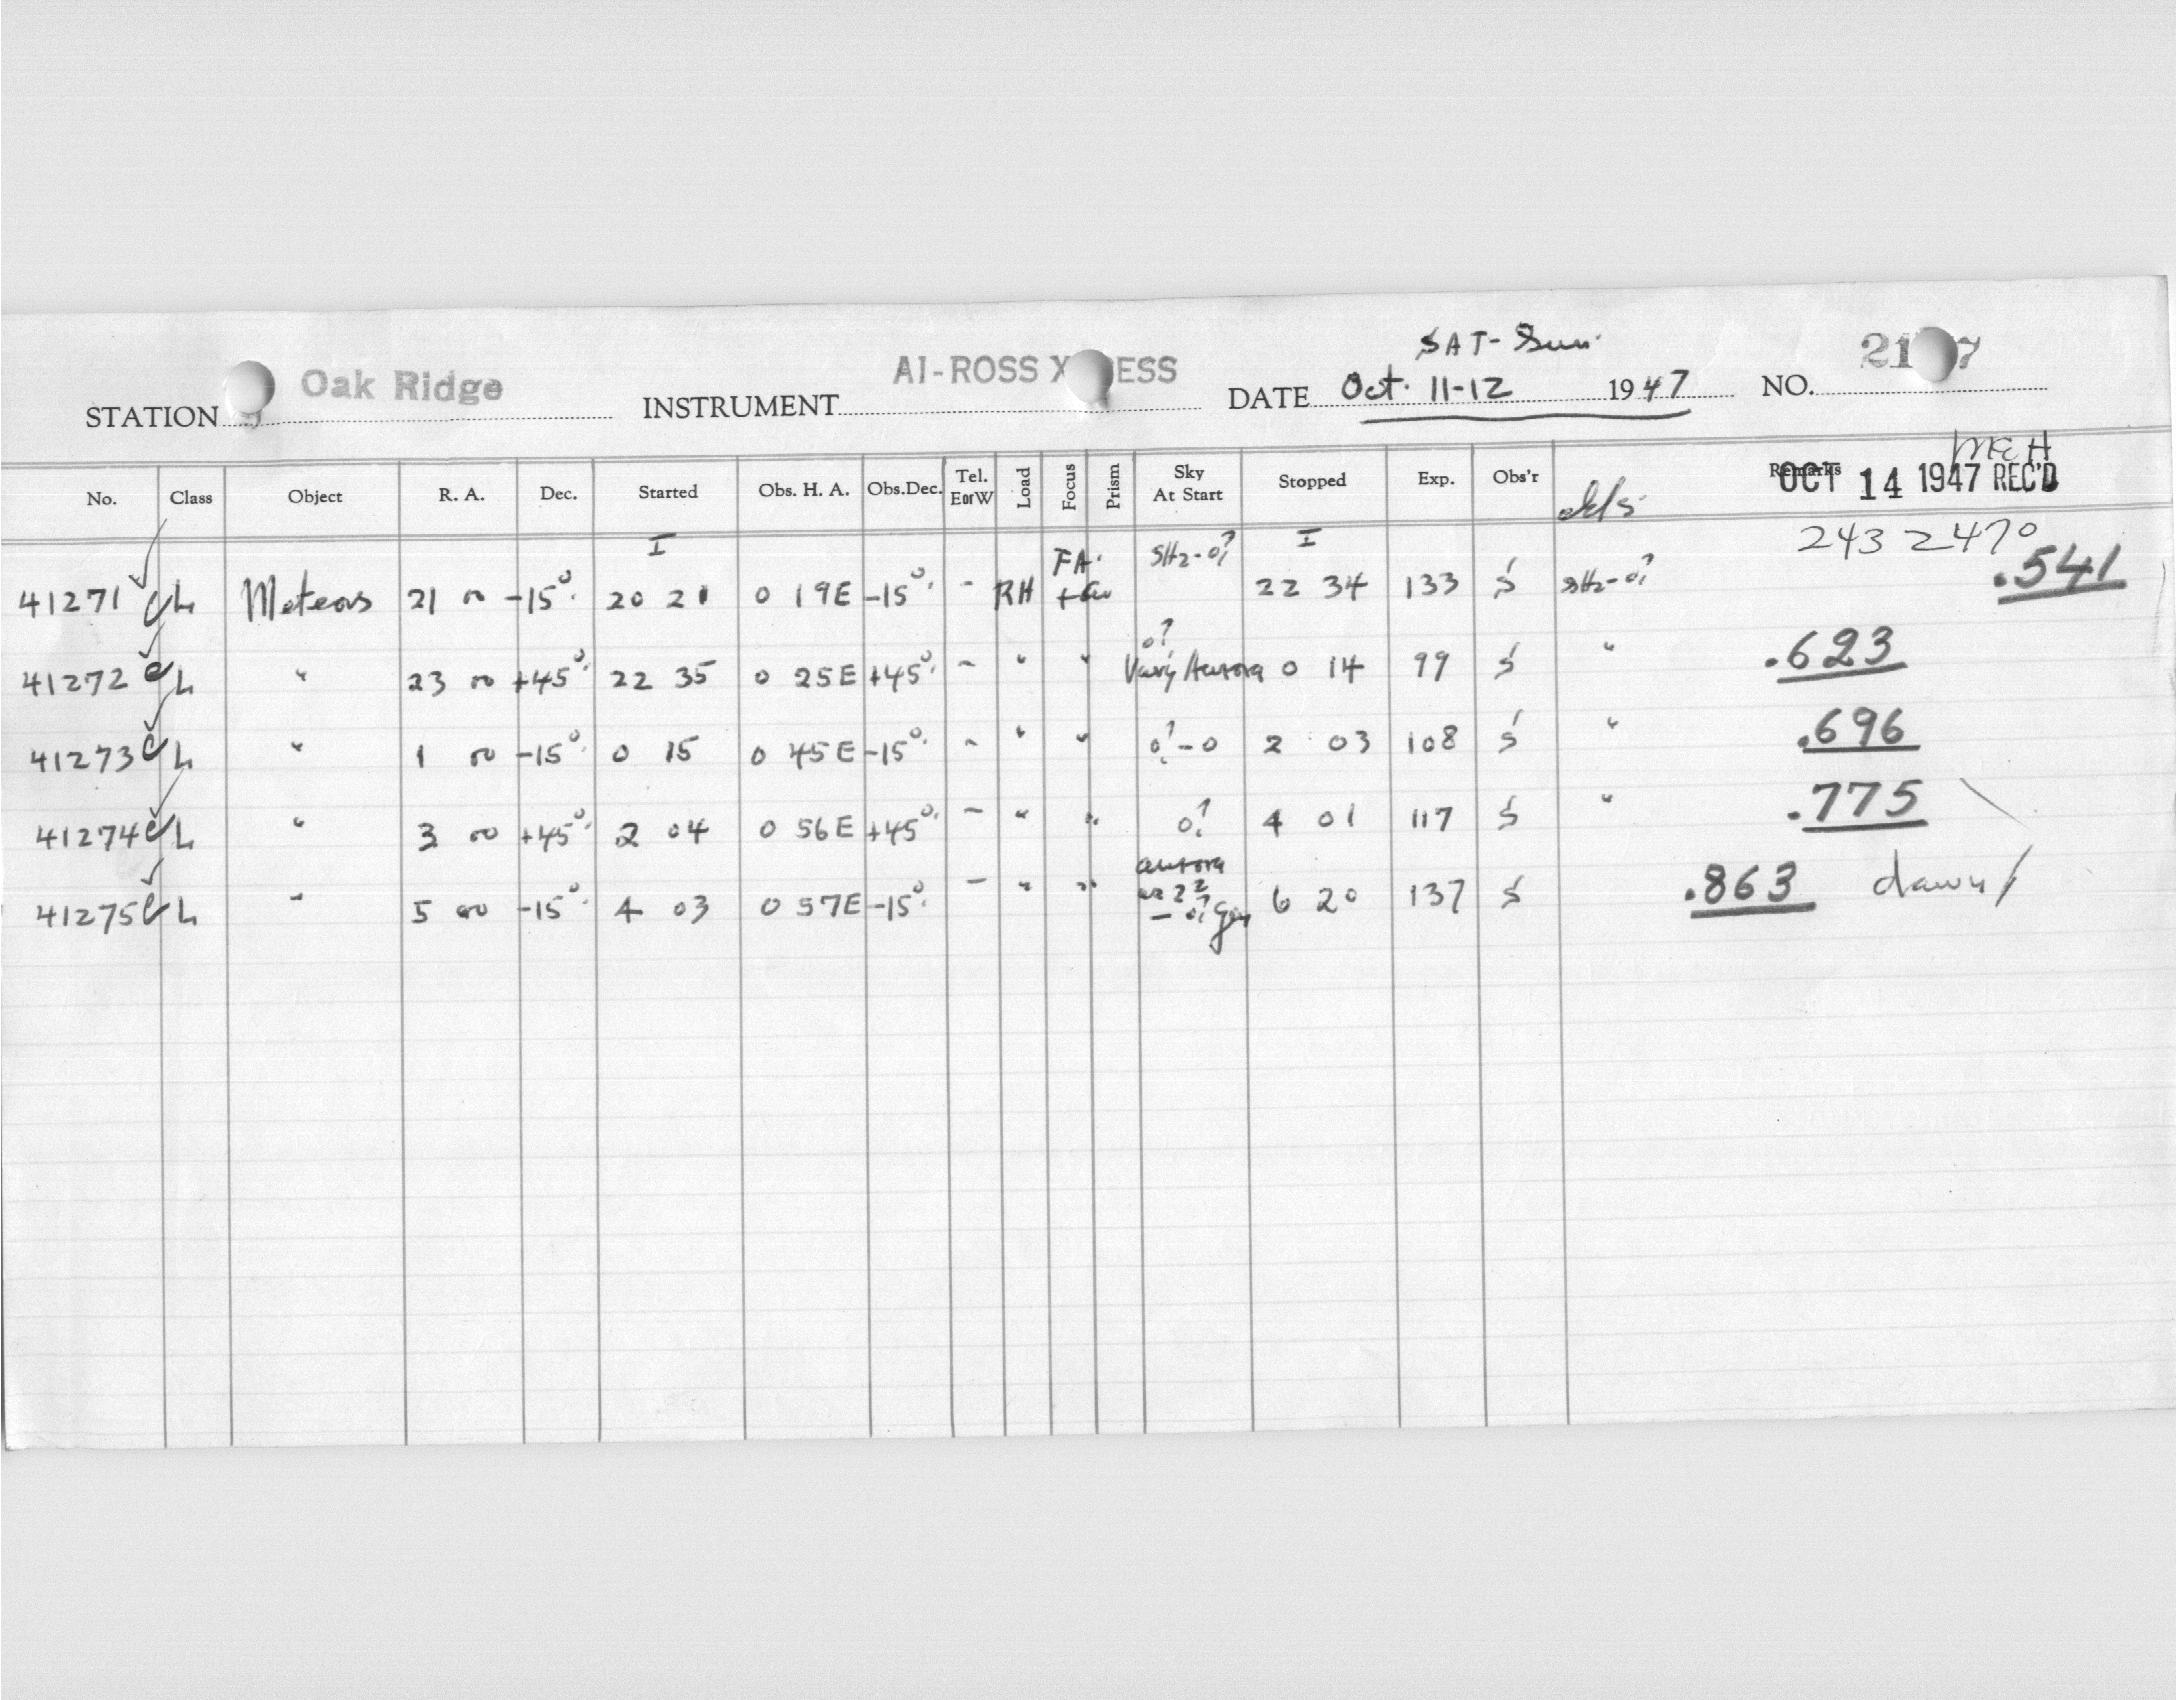 SAT-Sun.
STATION Oak Ridge INSTRUMENT AI-ROSS X ESS DATE Oct. 11-12 1947 NO. 21 7
MEH
No. Class Object R. A. Dec. Started Obs. H. A. Obs.Dec. Tel. EorW Load Focus Prism Sky At Start Stopped Exp. Obs'r Remarks
OCT 14 1947 REC'D
I I 243 2470
41271 CL Meteors 21 00 -15° 20 21 0 19E -15° - RH FA. SH2-0? 22 34 133 S SH2-0? .541
41272 CL " 23 00 +45° 22 35 0 25E +45° - " " 0? Vary Aurora 0 14 99 S " .623
41273 CL " 1 00 -15° 0 15 0 45E -15° - " " 0?-0 2 03 108 S " .696
41274 CL " 3 00 +45° 2 04 0 56E +45° - " " 0? 4 01 117 S " .775
41275 CL " 5 00 -15° 4 03 0 57E -15° - " " aurora - 0? 6 20 137 S .863 dawn